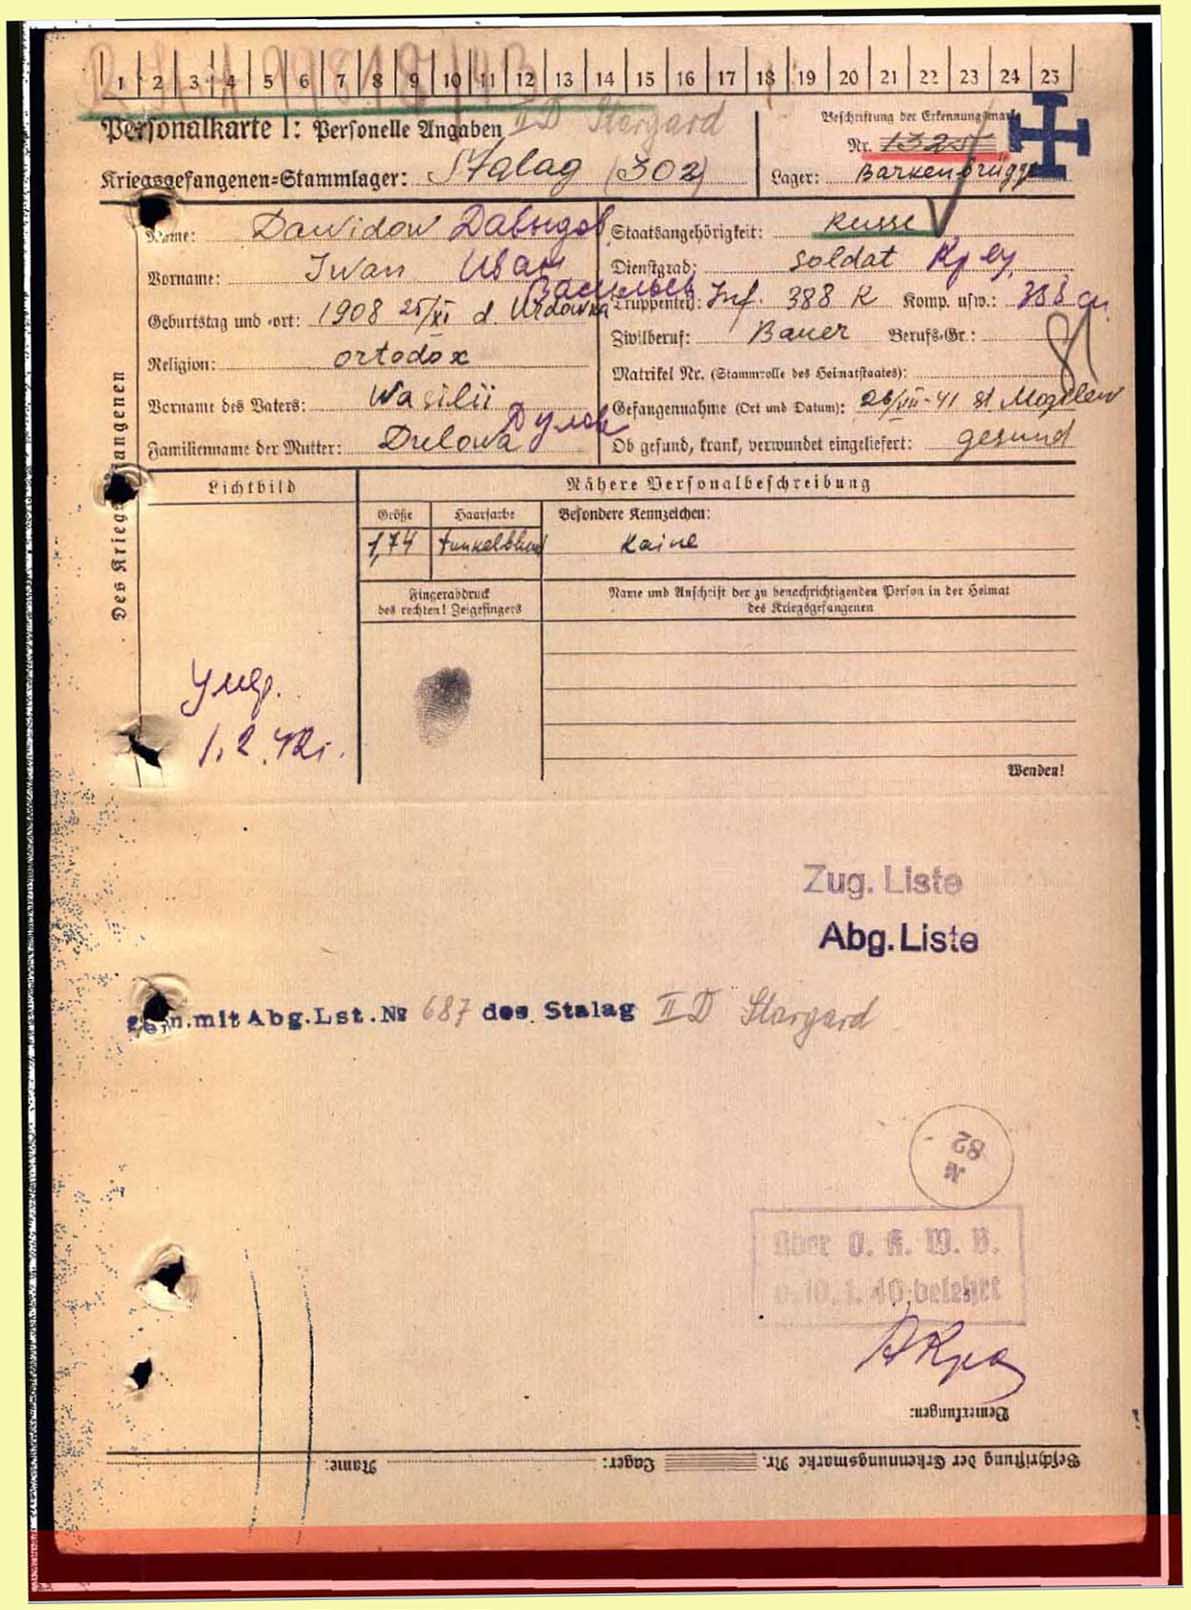 1 2 3 4 5 6 7 8 9 10 11 12 13 14 15 16 17 18 19 20 21 22 23 24 25
Personalkarte I: Personelle Angaben II D Stargard
Beschriftung der Erkennungsmarke
Nr. 1325
Kriegsgefangenen-Stammlager: Stalag (302)
Lager: Barkenbrügge
Des Kriegsgefangenen
Name: Dawidow Давыдов
Staatsangehörigkeit: Russe
Vorname: Iwan Иван
Васильев
Dienstgrad: Soldat
Geburtstag und -ort: 1908 25/XI d.
Truppenteil: Inf. 388 R Komp. usw.: 388
Zivilberuf: Bauer Berufs-Gr.:
Religion: ortodox
Matrikel Nr. (Stammrolle des Heimatstaates):
Vorname des Vaters: Wasilii
Gefangennahme (Ort und Datum): 26/VII-41 st Mogilew
Familienname der Mutter: Dulowa Дулов
Ob gesund, krank, verwundet eingeliefert: gesund
Lichtbild
Nähere Personalbeschreibung
Größe Haarfarbe Besondere Kennzeichen:
1,74 dunkelblond Kaine
Fingerabdruck
des rechten! Zeigefingers
Name und Anschrift der zu benachrichtigenden Person in der Heimat
des Kriegsgefangenen
1.2.42г.
Wenden!
Zug. Liste
Abg. Liste
gem. mit Abg. Lst. № 687 des Stalag II D Stargard
M
82
über O. K. W. B.
v. 10. 1. 40 belehrt
Bemerkungen:
Beschriftung der Erkennungsmarke Nr. Lager: Name: